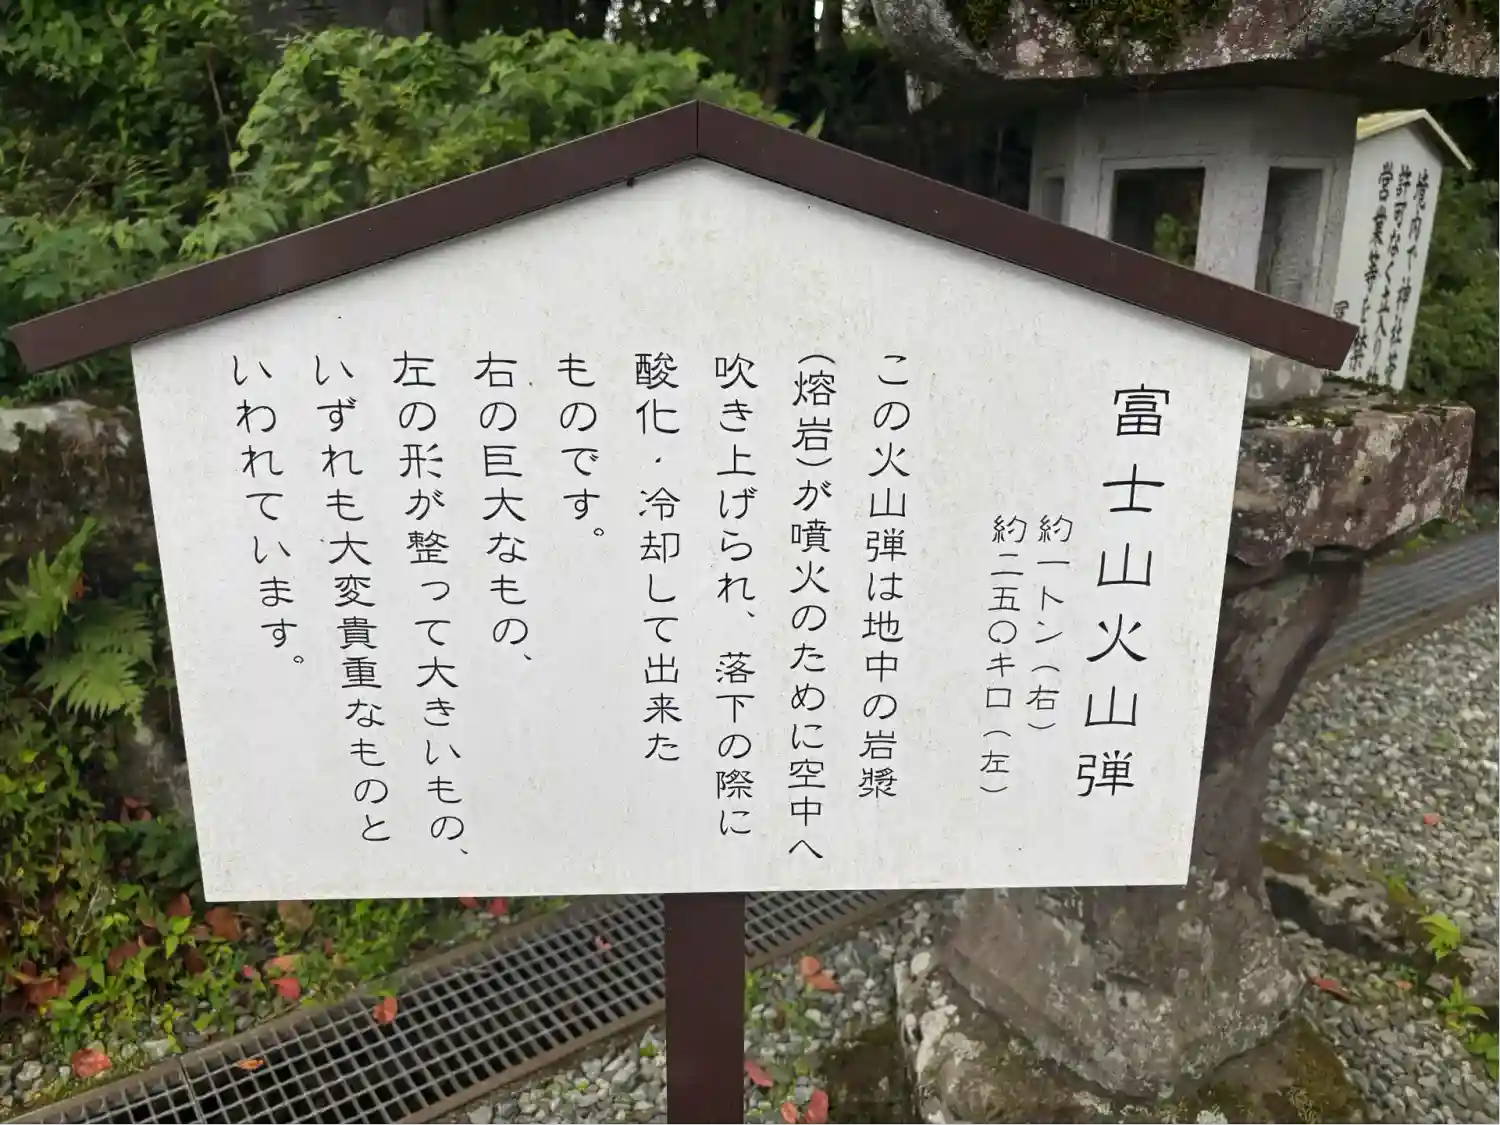 富士山火山弾
約一トン（右）
約二五〇キロ（左）
この火山弾は地中の岩漿
（熔岩）が噴火のために空中へ
吹き上げられ、落下の際に
酸化・冷却して出来た
ものです。
右の巨大なもの、
左の形が整って大きいもの、
いずれも大変貴重なものと
いわれています。
境内で神社
許可なく立入り
営業等を禁